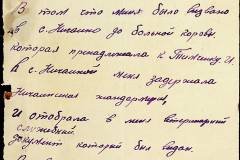 В том что меня было вызвано
в с. Ничаино до больной коровы
которая принадлежала к
в с. Ничаиной меня задержала
жандармерия,
и отобрала в меня ветеринарий
служебний
документ который был видан.